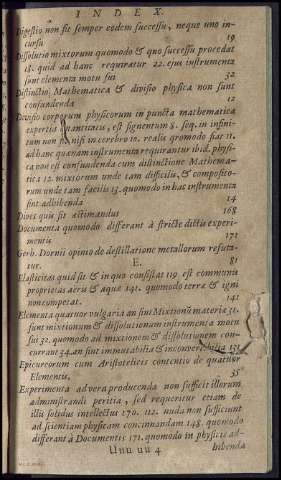 INDEX.
Digestio non fit semper eodem successu, neque uno in-
cursu 19
Dissolutio mixtorum quomodo & quo successu procedat
18. quid ad hanc requiratur 22. ejus instrumenta
sunt elementa motu sui 32
Distinctio Mathematica & divisio physica non sunt
confundenda 12
Divisio corporum physicorum in puncta mathematica
expertia quantitatis, est figmentum 8. seq. in infini-
tum non fit nisi in cerebro in. realis quomodo fiat 11.
ad hanc quænam instrumenta requirantur ibid. physi-
ca non est confundenda cum distinctione Mathema-
tica 12. mixtorum unde tam difficilis, & composito-
rum unde tam facilis 13. quomodo in has instrumenta
sint adhibenda 14
Dives quis sit æstimandus 168
Documenta quomodo differant à strictè dictis experi-
mentis 171
Gerh. Dornii opinio de destillatione metallorum refuta-
tur. 81
E.
Elasticitas quid sit & in quo consistat 119 est communis
proprietas aëris & aquæ 141. quomodo terræ & igni
non competat. 141
Elementa quatuor vulgaria an sint Mixtionũ materia 31.
sunt mixtionum & dissolutionum instrumenta motu
sui 32. quomodo ad mixtionem & dissolutionem con-
currant 34. an sint immutabilia & inconvertibilia 151
Epicureorum cum Aristotelicis contentio de quatuor
Elementis, 35
Experimenta ad vera producenda non sufficit illorum
administrandi peritia, sed requiritur etiam de
illis solidus intellectus 170. 212. nuda non sufficiunt
ad scientiam physicam concinnandam 148. quomodo
differant à Documentis 171. quomodo in physicis ad-
Uuu uu 4 hibenda